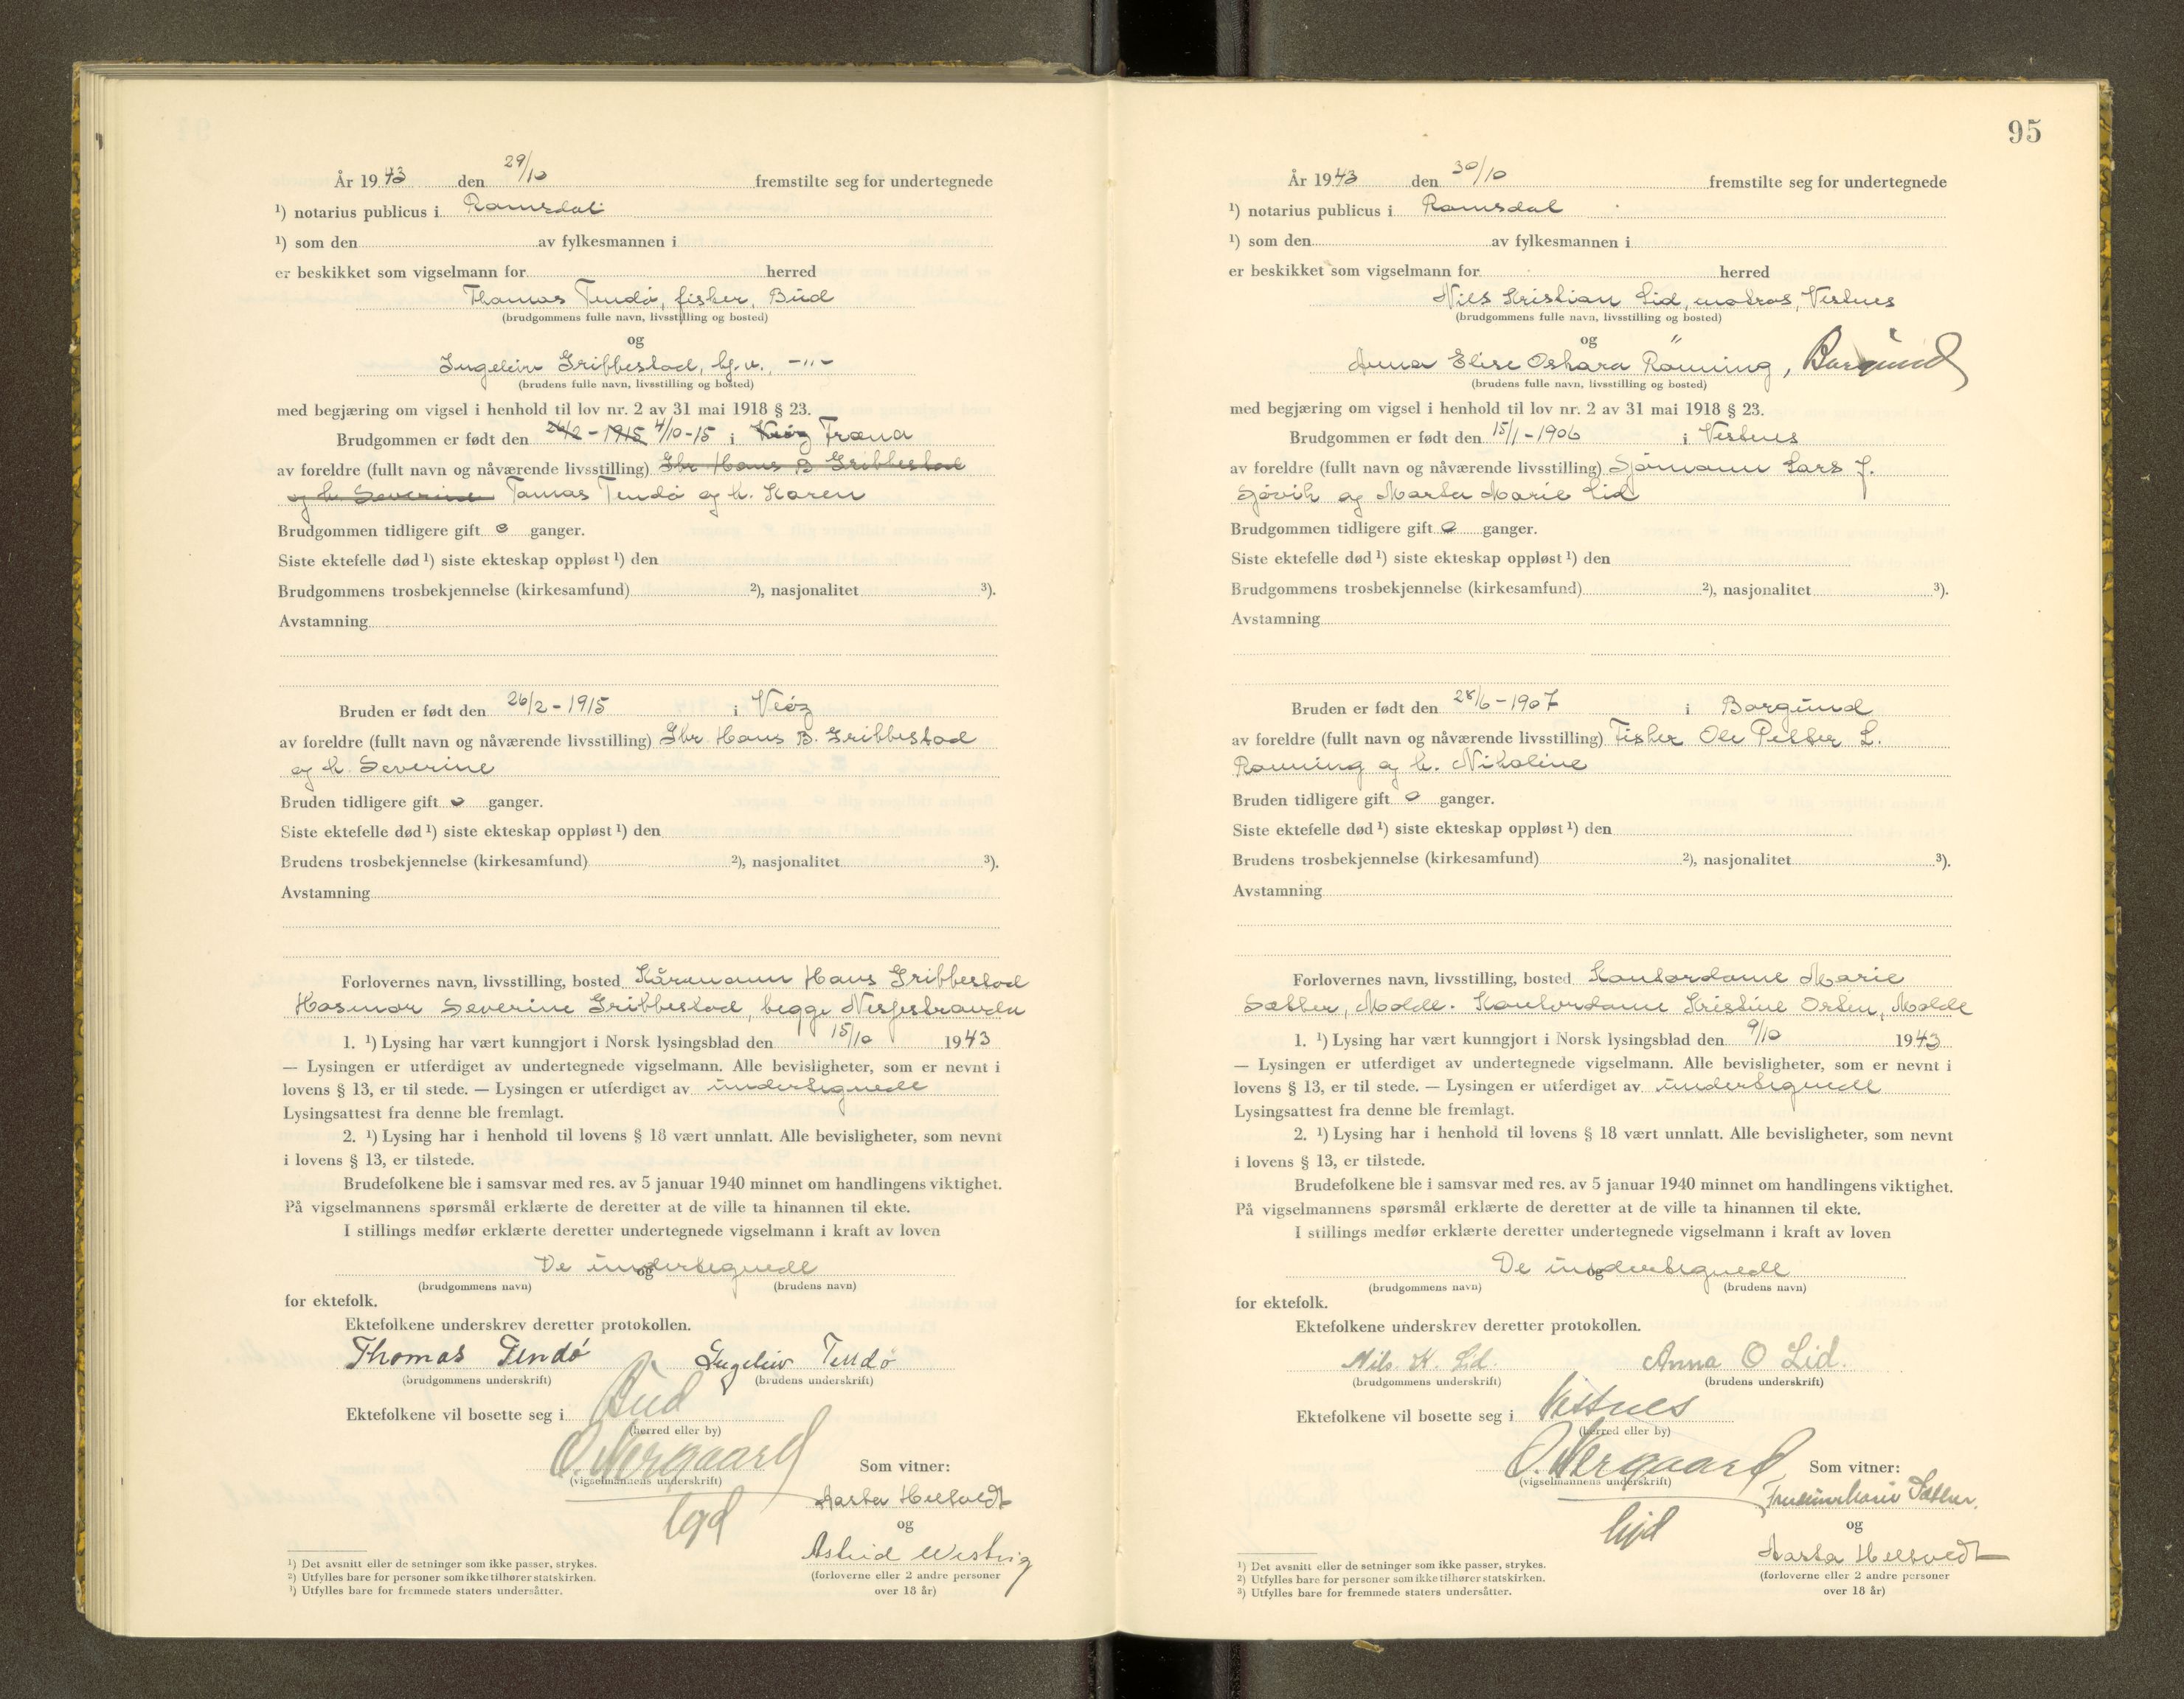 År 1943 den 29/10 fremstilte seg for undertegnede
¹) notarius publicus i Romsdal
¹) som den av fylkesmannen i
er beskikket som vigselmann for herred
Thomas Tendø, fisker, Bud
(brudgommens fulle navn, livsstilling og bosted)
og
Ingeleiv Gribbestad, hj.v., -"-
(brudens fulle navn, livsstilling og bosted)
med begjæring om vigsel i henhold til lov nr. 2 av 31 mai 1918 § 23.
Brudgommen er født den 26/2 - 1915 4/10-15 i Veøy Fræna
av foreldre (fullt navn og nåværende livsstilling) Gbr Hans B Gribbestad
og h. Severine Tomas Tendø og h. Karen
Brudgommen tidligere gift 0 ganger.
Siste ektefelle død ¹) siste ekteskap oppløst ¹) den
Brudgommens trosbekjennelse (kirkesamfund) ²), nasjonalitet ³).
Avstamning
Bruden er født den 26/2 - 1915 i Veøy
av foreldre (fullt navn og nåværende livsstilling) Gbr Hans B. Gribbestad
og h. Severine
Bruden tidligere gift 0 ganger.
Siste ektefelle død ¹) siste ekteskap oppløst ¹) den
Brudens trosbekjennelse (kirkesamfund) ²), nasjonalitet ³).
Avstamning
Forlovernes navn, livsstilling, bosted Kårmann Hans Gribbestad
Hosmor Severine Gribbestad, begge Nesjestranda
1. ¹) Lysing har vært kunngjort i Norsk lysingsblad den 15/10 1943
— Lysingen er utferdiget av undertegnede vigselmann. Alle bevisligheter, som er nevnt i
lovens § 13, er til stede. — Lysingen er utferdiget av undertegnede
Lysingsattest fra denne ble fremlagt.
2. ¹) Lysing har i henhold til lovens § 18 vært unnlatt. Alle bevisligheter, som nevnt
i lovens § 13, er tilstede.
Brudefolkene ble i samsvar med res. av 5 januar 1940 minnet om handlingens viktighet.
På vigselmannens spørsmål erklærte de deretter at de ville ta hinannen til ekte.
I stillings medfør erklærte deretter undertegnede vigselmann i kraft av loven
De undertegnede
og
(brudgommens navn) (brudens navn)
for ektefolk.
Ektefolkene underskrev deretter protokollen.
Thomas Tendø Ingeleiv Tendø
(brudgommens underskrift) (brudens underskrift)
Ektefolkene vil bosette seg i Bud
(herred eller by)
O. Nergaard
(vigselmannens underskrift) Som vitner:
Aasta Heltvedt
og
Astrid
(forloverne eller 2 andre personer
over 18 år)
¹) Det avsnitt eller de setninger som ikke passer, strykes.
²) Utfylles bare for personer som ikke tilhører statskirken.
³) Utfylles bare for fremmede staters undersåtter.
95
År 1943 den 30/10 fremstilte seg for undertegnede
¹) notarius publicus i Romsdal
¹) som den av fylkesmannen i
er beskikket som vigselmann for herred
Nils Kristian Lid, matros, Vestnes
(brudgommens fulle navn, livsstilling og bosted)
og
Anna Elise Oskara Rønning, Borgund
(brudens fulle navn, livsstilling og bosted)
med begjæring om vigsel i henhold til lov nr. 2 av 31 mai 1918 § 23.
Brudgommen er født den 15/1 - 1906 i Vestnes
av foreldre (fullt navn og nåværende livsstilling) Sjømann Lars J.
Gjøvik og Marta Marie Lid
Brudgommen tidligere gift 0 ganger.
Siste ektefelle død ¹) siste ekteskap oppløst ¹) den
Brudgommens trosbekjennelse (kirkesamfund) ²), nasjonalitet ³).
Avstamning
Bruden er født den 28/6 - 1907 i Borgund
av foreldre (fullt navn og nåværende livsstilling) Fisker Ole Petter L.
Rønning og h. Nikoline
Bruden tidligere gift 0 ganger.
Siste ektefelle død ¹) siste ekteskap oppløst ¹) den
Brudens trosbekjennelse (kirkesamfund) ²), nasjonalitet ³).
Avstamning
Forlovernes navn, livsstilling, bosted Kontordame Marie
Sætter, Molde. Kontordame Kristine Orten, Molde
1. ¹) Lysing har vært kunngjort i Norsk lysingsblad den 9/10 1943
— Lysingen er utferdiget av undertegnede vigselmann. Alle bevisligheter, som er nevnt i
lovens § 13, er til stede. — Lysingen er utferdiget av undertegnede
Lysingsattest fra denne ble fremlagt.
2. ¹) Lysing har i henhold til lovens § 18 vært unnlatt. Alle bevisligheter, som nevnt
i lovens § 13, er tilstede.
Brudefolkene ble i samsvar med res. av 5 januar 1940 minnet om handlingens viktighet.
På vigselmannens spørsmål erklærte de deretter at de ville ta hinannen til ekte.
I stillings medfør erklærte deretter undertegnede vigselmann i kraft av loven
De undertegnede
og
(brudgommens navn) (brudens navn)
for ektefolk.
Ektefolkene underskrev deretter protokollen.
Nils K. Lid. Anna O Lid.
(brudgommens underskrift) (brudens underskrift)
Ektefolkene vil bosette seg i Vestnes
(herred eller by)
O. Nergaard
(vigselmannens underskrift) Som vitner:
og
Aasta Heltvedt
(forloverne eller 2 andre personer
over 18 år)
¹) Det avsnitt eller de setninger som ikke passer, strykes.
²) Utfylles bare for personer som ikke tilhører statskirken.
³) Utfylles bare for fremmede staters undersåtter.